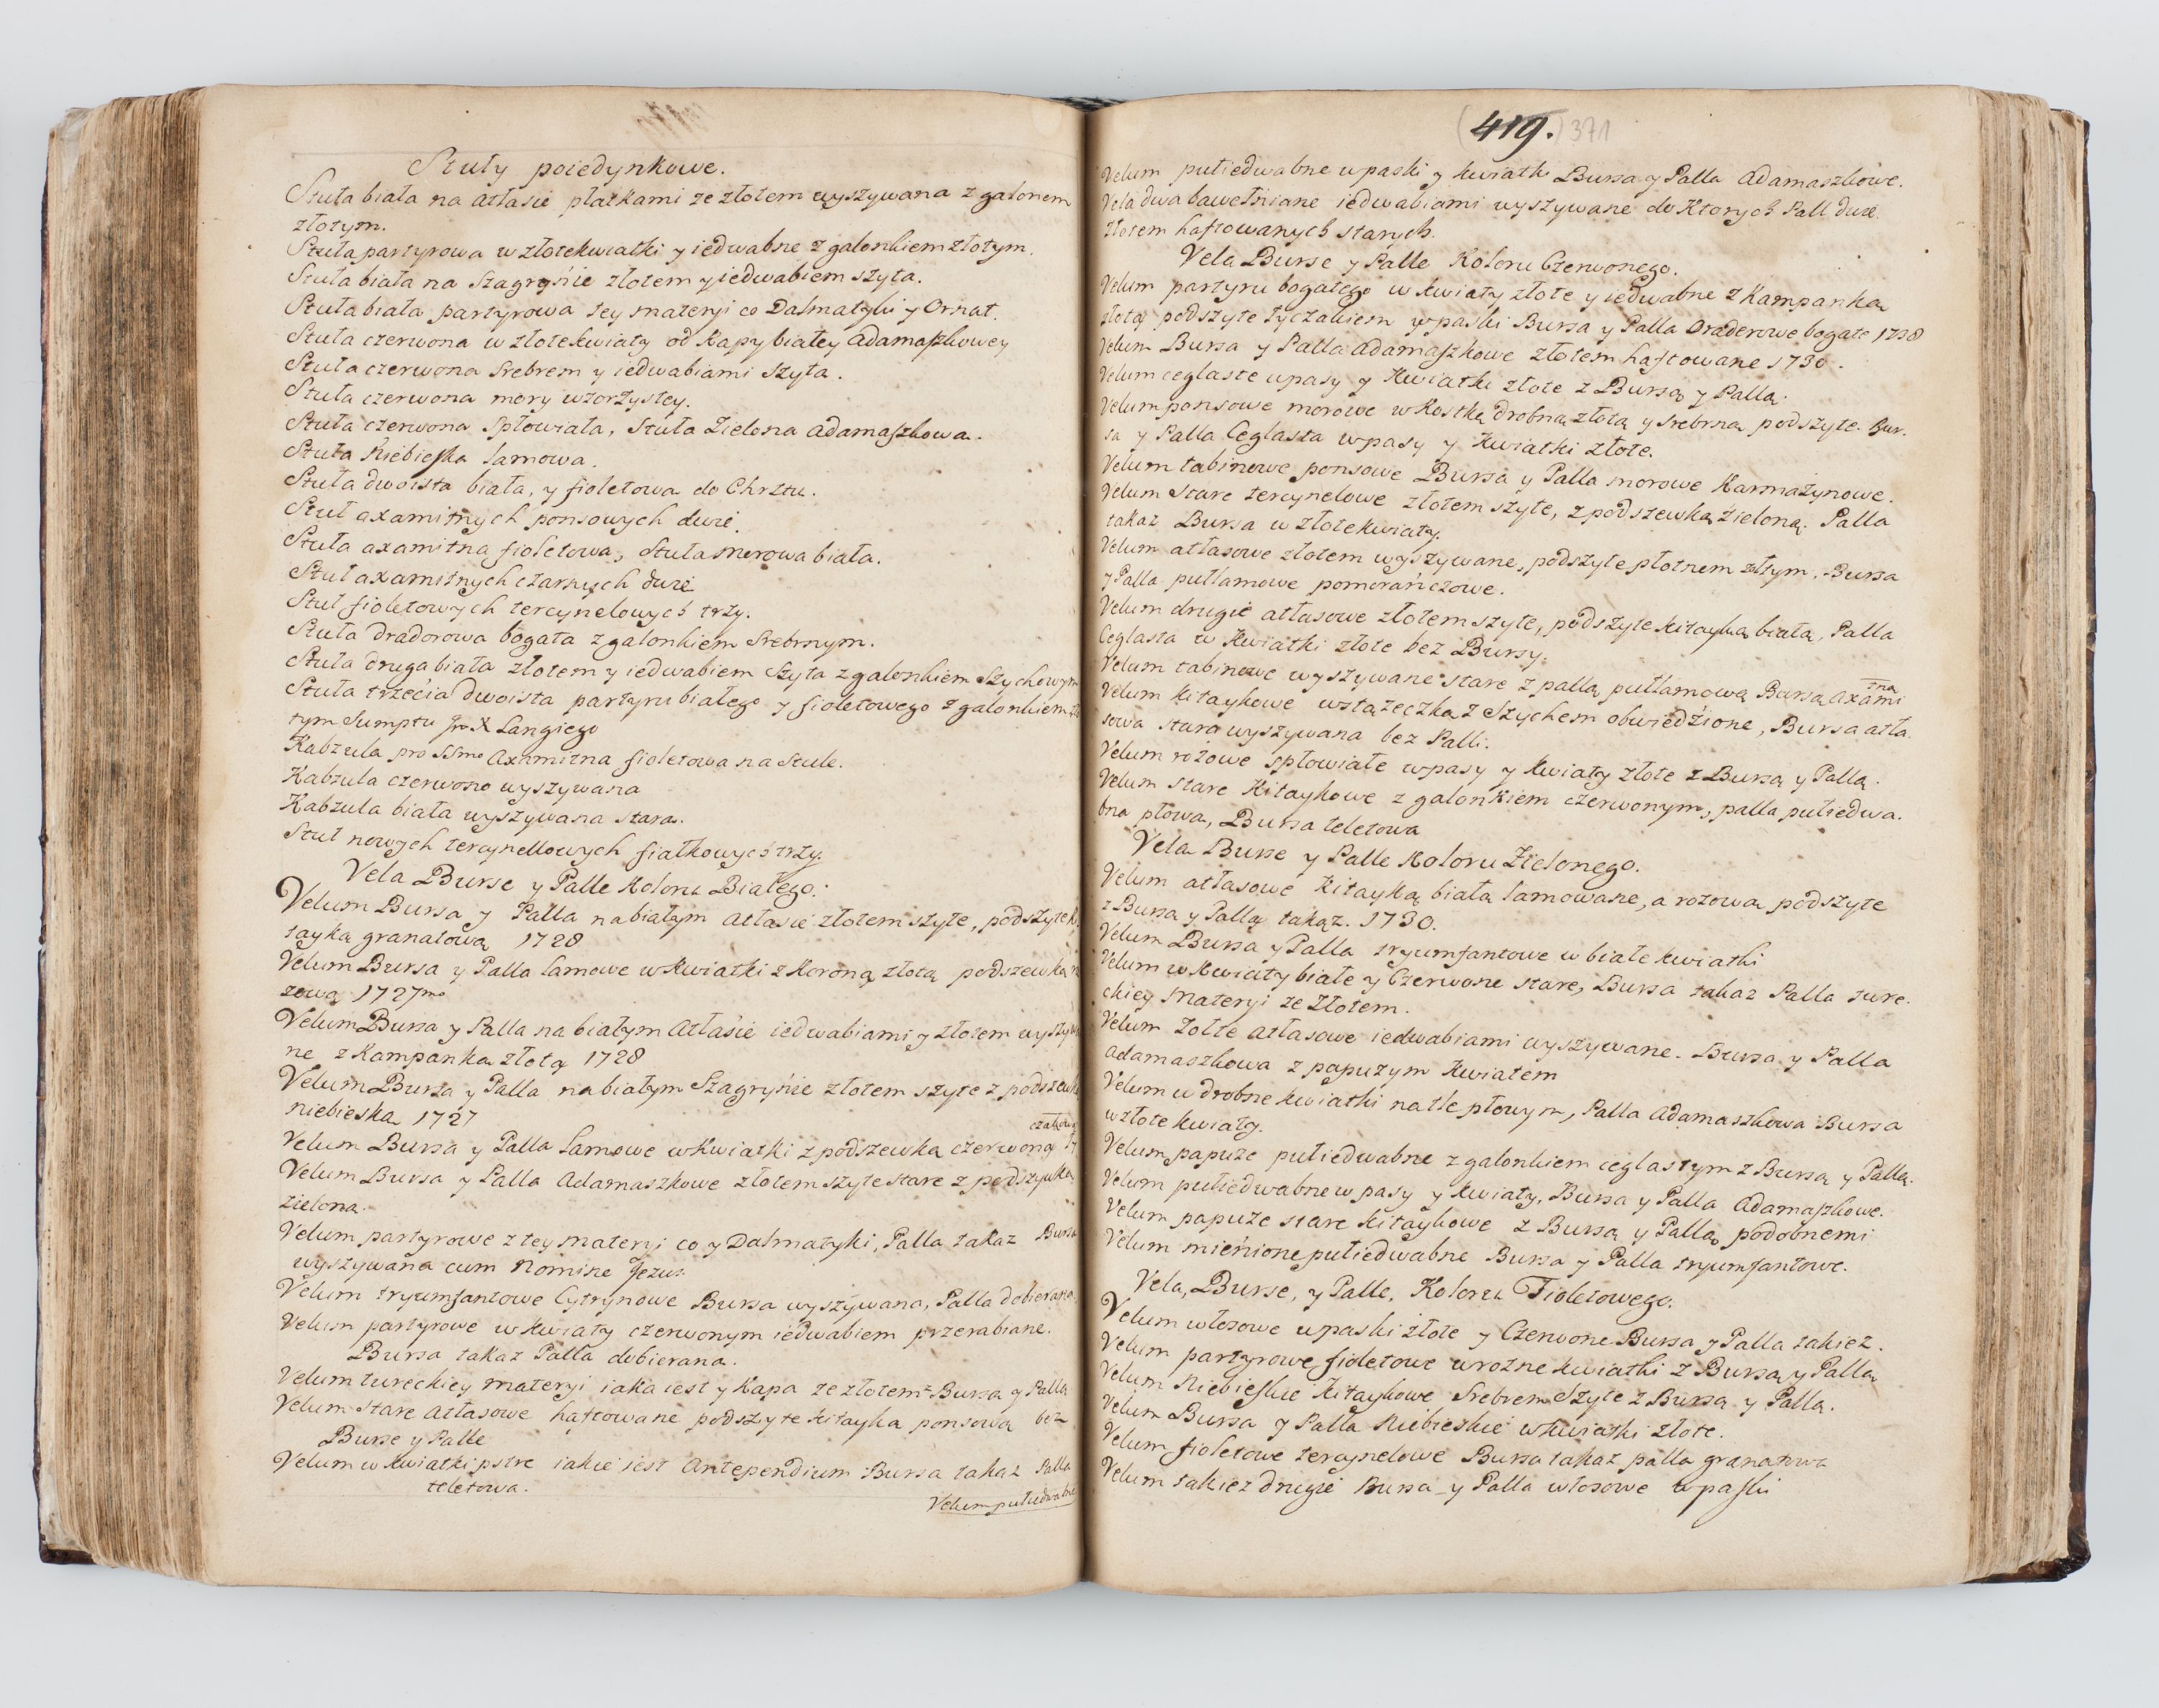 Stuły poiedynkowe.
Stuła biała na atłasie płatkami ze złotem wyszywana z galonem
złotym.
Stuła partyrowa w złote kwiatki y iedwabne z galonkiem złotym.
Stuła biała na Szagrynie złotem y iedwabiem szyta.
Stuła biała partyrowa tey materyi co Dalmatyki y Ornat.
Stuła czerwona w złote kwiaty od Kapy białey adamaszkowey
Stuła czerwona Srebrem y iedwabiami szyta.
Stuła czerwona mory wzorzystey.
Stuła czerwona Spłowiała, Stuła Zielona adamaszkowa.
Stuła Niebieska lamowa.
Stuła dwoista biała, y fioletowa do Chrztu.
Stuł axamitnych ponsowych dwie.
Stuła axamitna fioletowa, Stuła morowa biała.
Stuł axamitnych czarnych dwie
Stuł fioletowych tercynelowych trzy.
Stuła dradorowa bogata z galonkiem Srebrnym.
Stuła druga biała złotem y iedwabiem Szyta z galonkiem Szychowym
Stuła trzecia dwoista partyru białego y fioletowego z galonkiem
tym Sumptu X Langiego
Kabzula pro SSmo Axamitna fioletowa na Stule.
Kabzula czerwono wyszywana
Kabzula biała wyszywana stara.
Stuł nowych tercynellowych fiałkowych trzy.
Vela Burse y Palle Koloru Białego.
Velum Bursa y Palla na białym atłasie złotem szyte, podszyte ki
tayką granatową 1728
Velum Bursa y Palla lamowe w kwiatki z Koroną złotą podszewka
zową 1727mo
Velum Bursa y Palla na białym Atłasie iedwabiami y złotem wyszywa
ne z Kampanka złotą 1728
Velum Bursa y Palla na białym Szagrynie złotem szyte z podszewk
niebieska 1727
Velum Bursa y Palla lamowe w kwiatki z podszewka czerwoną
Velum Bursa y Palla Adamaszkowe złotem szyte stare z podszywką
zielona.
Velum partyrowe z tey materyi co y Dalmatyki, Palla takaz Bursa
wyszywana cum Nomine Jezus
Velum tryumfantowe Cytrynowe Bursa wyszywana, Palla dobierana.
Velum partyrowe w kwiaty czerwonym iedwabiem przerabiane.
Bursa takaz Palla dobierana.
Velum tureckiey materyi iaka iest y Kapa ze złotem Bursa y Palla
Velum stare Atłasowe haftowane podszyte kitayka ponsową bez
Burse y Palle
Velum w kwiatki pstre iakie iest Antependium Bursa takaz Palla
teletowa.
Velum pułiedwabne
419. 371
Velum pułiedwabne w paski y kwiatki Bursa y Palla Adamaszkowe.
Vela dwa bawełniane iedwabiami wyszywane do Ktorych Pall dwie
złotem haftowanych starych.
Vela Burse y Palle Koloru Czerwonego.
Velum partyru bogatego w kwiaty złote y iedwabne z Kampanka
złotą podszyte tyczakiem w paski Bursa y Palla Draderowe bogate 1728
Velum Bursa y Palla Adamaszkowe złotem haftowane 1730.
Velum ceglaste w pasy y kwiatki złote z Bursą y Pallą.
Velum ponsowe morowe w kostkę drobną złotą y srebrną podszyte. Bur.
sa y Palla Ceglasta w pasy y kwiatki złote.
Velum tabinowe ponsowe Bursa y Palla morowe Karmazynowe.
Velum Stare tercynelowe złotem szyte, z podszewką zieloną. Palla
takaz Bursa w złote kwiaty.
Velum atłasowe złotem wyszywane, podszyte płotnem zołtym. Bursa
y Palla pułlamowe pomorańczowe.
Velum drugie atłasowe złotem szyte, podszyte kitayką białą, Palla
Ceglasta w kwiatki złote bez Bursy.
Velum tabinowe wyszywane stare z pallą pułlamową Bursą axamitną
Velum kitaykowe wstążeczką z Szychem obwiedzione, Bursa atła
sowa stara wyszywana bez Palli.
Velum rożowe spłowiałe w pasy y kwiaty złote z Bursą y Pallą.
Velum stare Kitaykowe z galonkiem czerwonym, palla pułiedwa.
bna płowa, Bursa teletowa
Vela Burse y Palle Koloru Zielonego.
Velum atłasowe kitayką białą lamowane, a rozową podszyte
z Bursą y Pallą takąz. 1730.
Velum Bursa y Palla tryumfantowe w białe kwiatki
Velum w kwiaty białe y Czerwone stare, Bursa takaz Palla ture.
ckiey materyi ze Złotem.
Velum Zołte atłasowe iedwabiami wyszywane. Bursa y Palla
adamaszkowa z papuzym kwiatem
Velum w drobne kwiatki na tle płowym, Palla Adamaszkowa Bursa
w złote kwiaty.
Velum papuze pułiedwabne z galonkiem ceglastym z Bursą y Pallą.
Velum pułiedwabne w pasy y kwiaty, Bursa y Palla adamaszkowe.
Velum papuze stare kitaykowe z Bursą y Pallą podobnemi
Velum mienione pułiedwabne Bursa y Palla tryumfantowe.
Vela, Burse, y Palle, Koloru Fioletowego.
Velum włosowe w paski złote y Czerwone Bursa y Palla takiez.
Velum partyrowe fioletowe w rozne kwiatki z Bursą y Pallą
Velum Niebieskie Kitaykowe Srebrem Szyte z Bursą y Pallą.
Velum Bursa y Palla Niebieskie w kwiatki złote.
Velum fioletowe tercynelowe Bursa takaz palla granatowa
Velum takiez drugie Bursa y Palla włosowe w paski